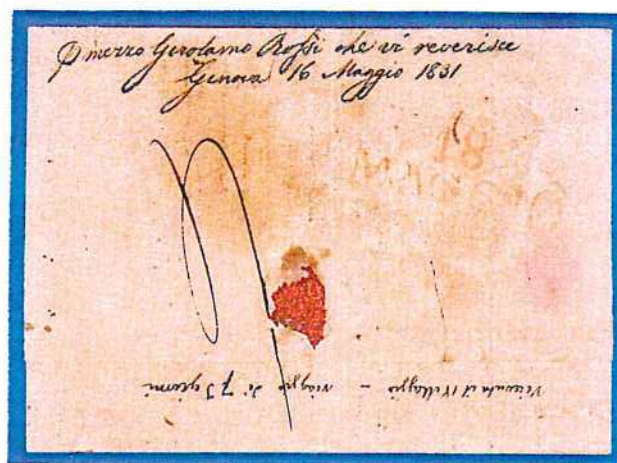 P mezzo Gerolamo Rossi che vi reverisce
Genova 16 Maggio 1831
Ricevuta il – viaggio di giorni